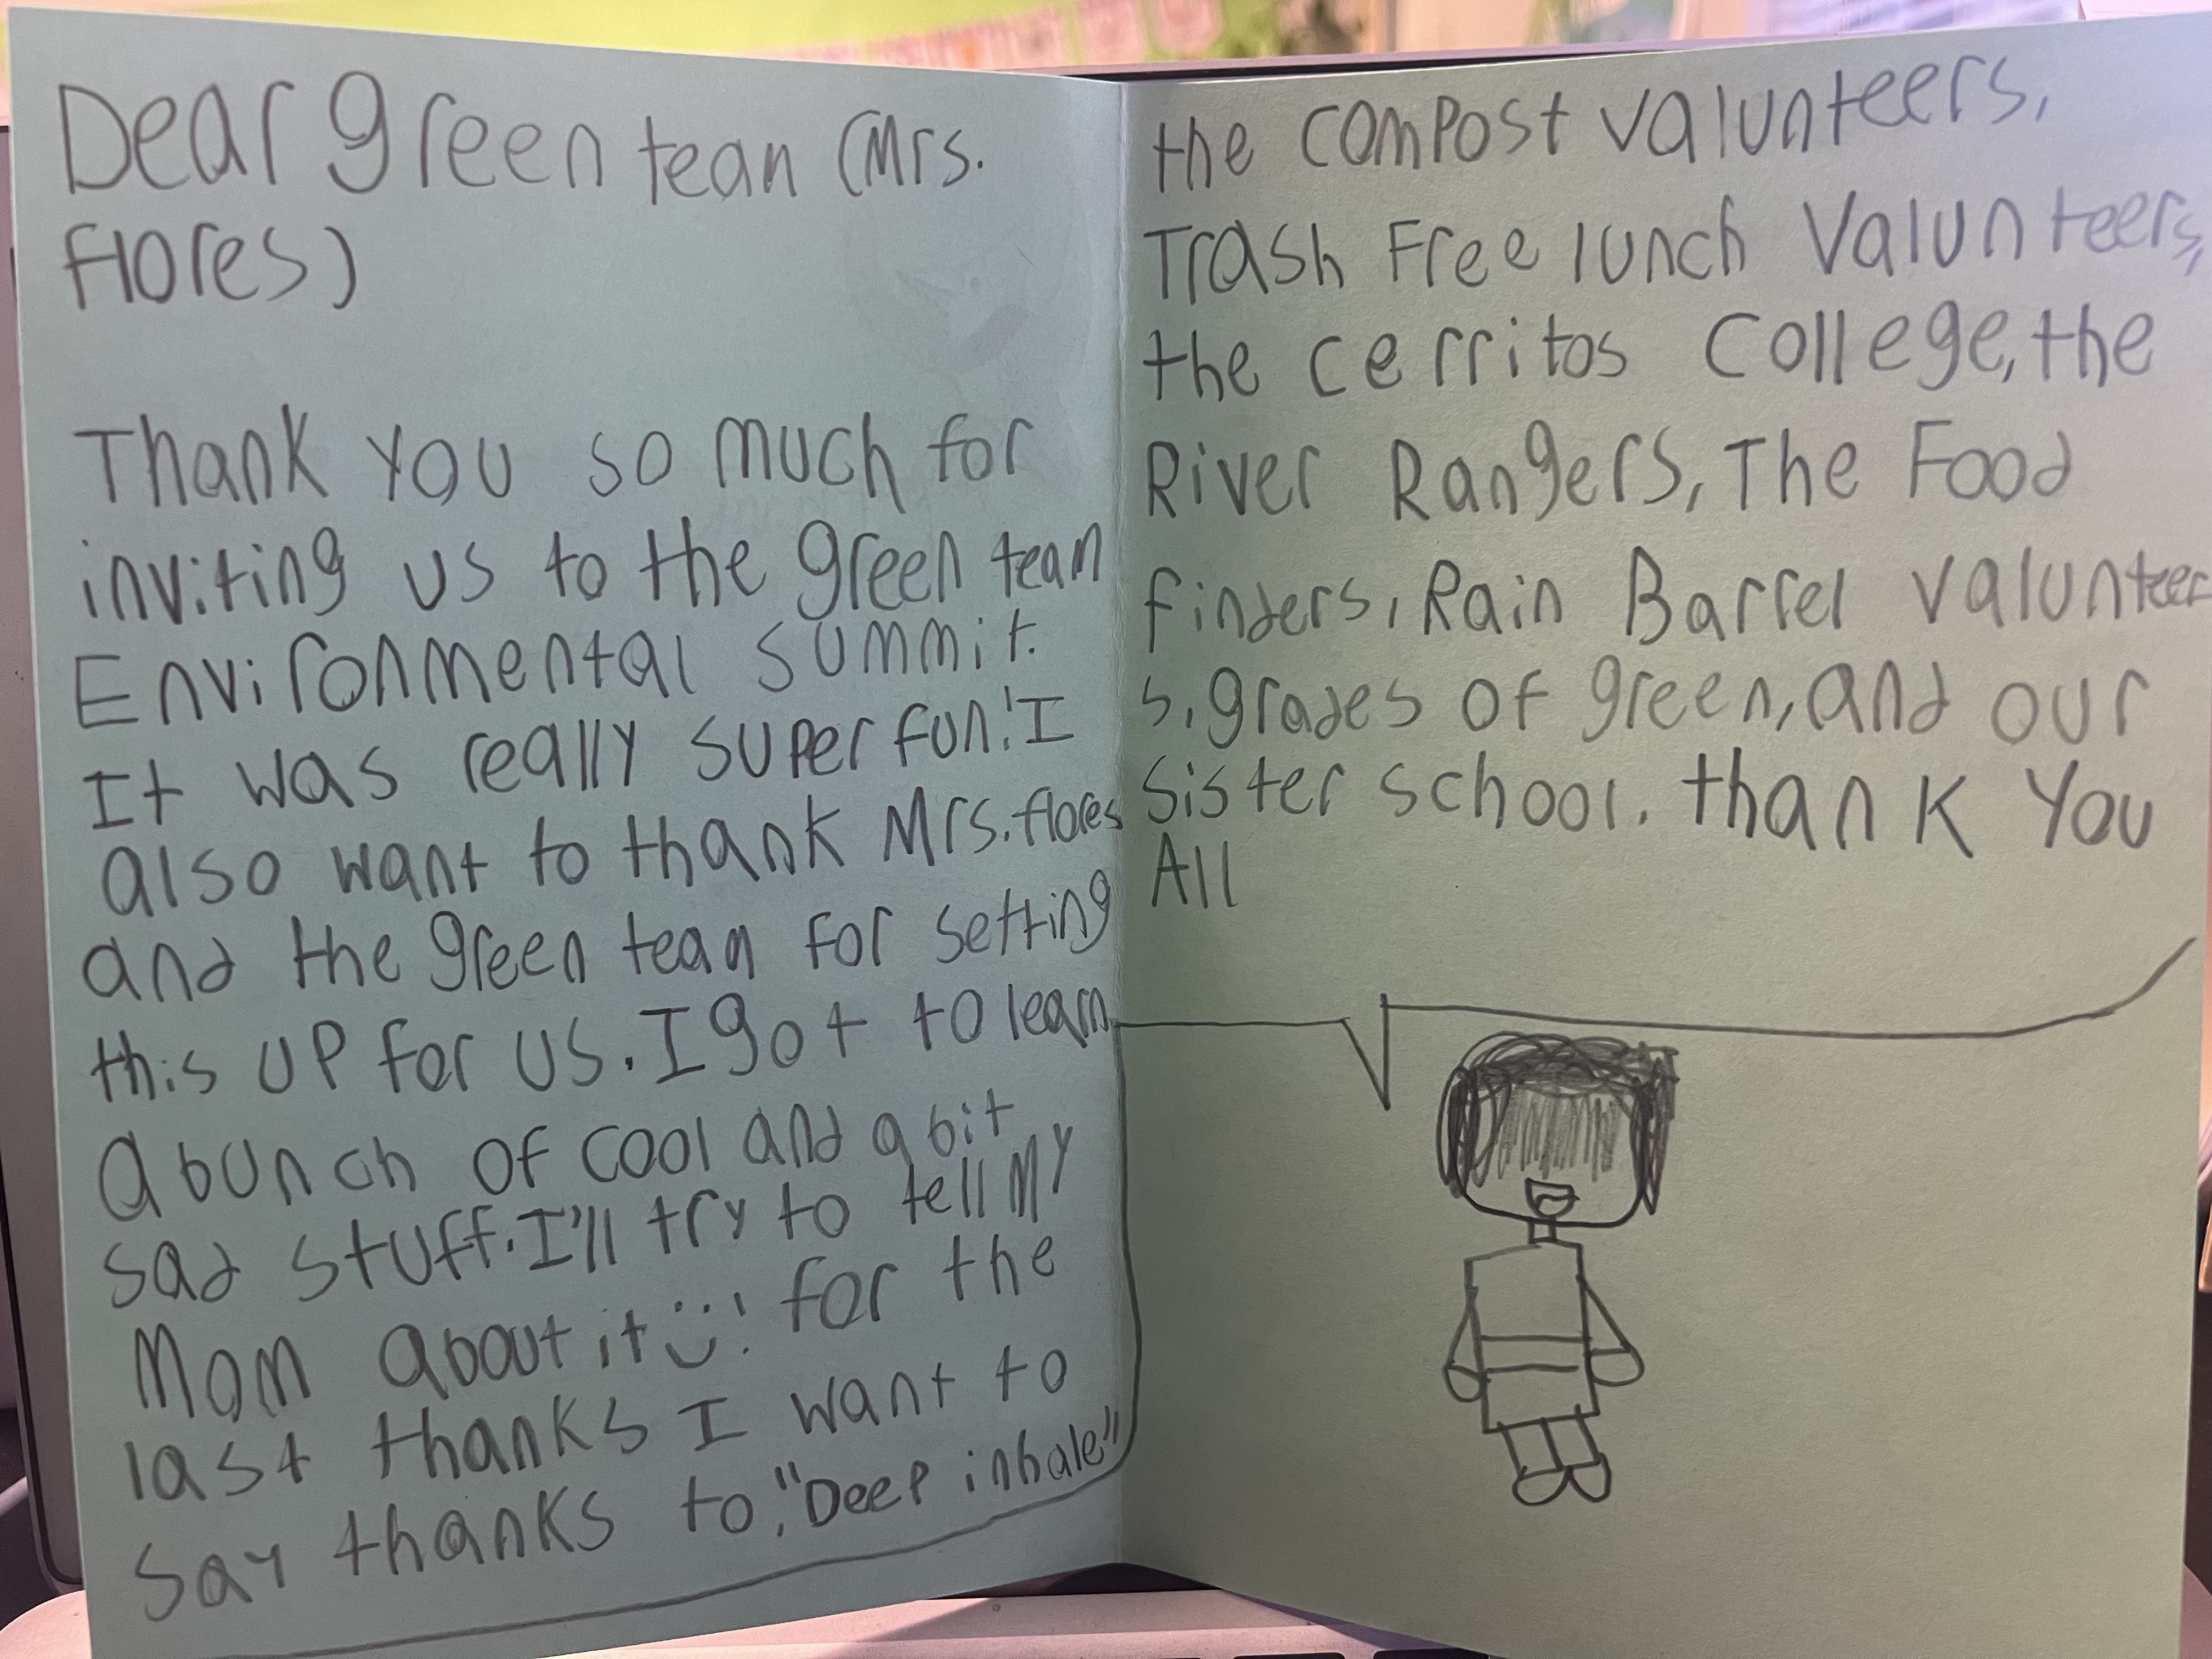 Dear green tean (Mrs.
flores)
Thank you so much for
inviting us to the green team
Environmental summit.
It was really super fun! I
also want to thank Mrs. flores
and the green team for setting
this up for us. I got to learn
a bunch of cool and a bit
sad stuff. I'll try to tell my
Mom about it :)! for the
last thanks I want to
say thanks to, "Deep inhale"
the compost valunteers,
Trash Free lunch Valunteers,
the cerritos college, the
River Rangers, The Food
finders, Rain Barrel valunteer
s, grades of green, and our
Sister school. thank you
All